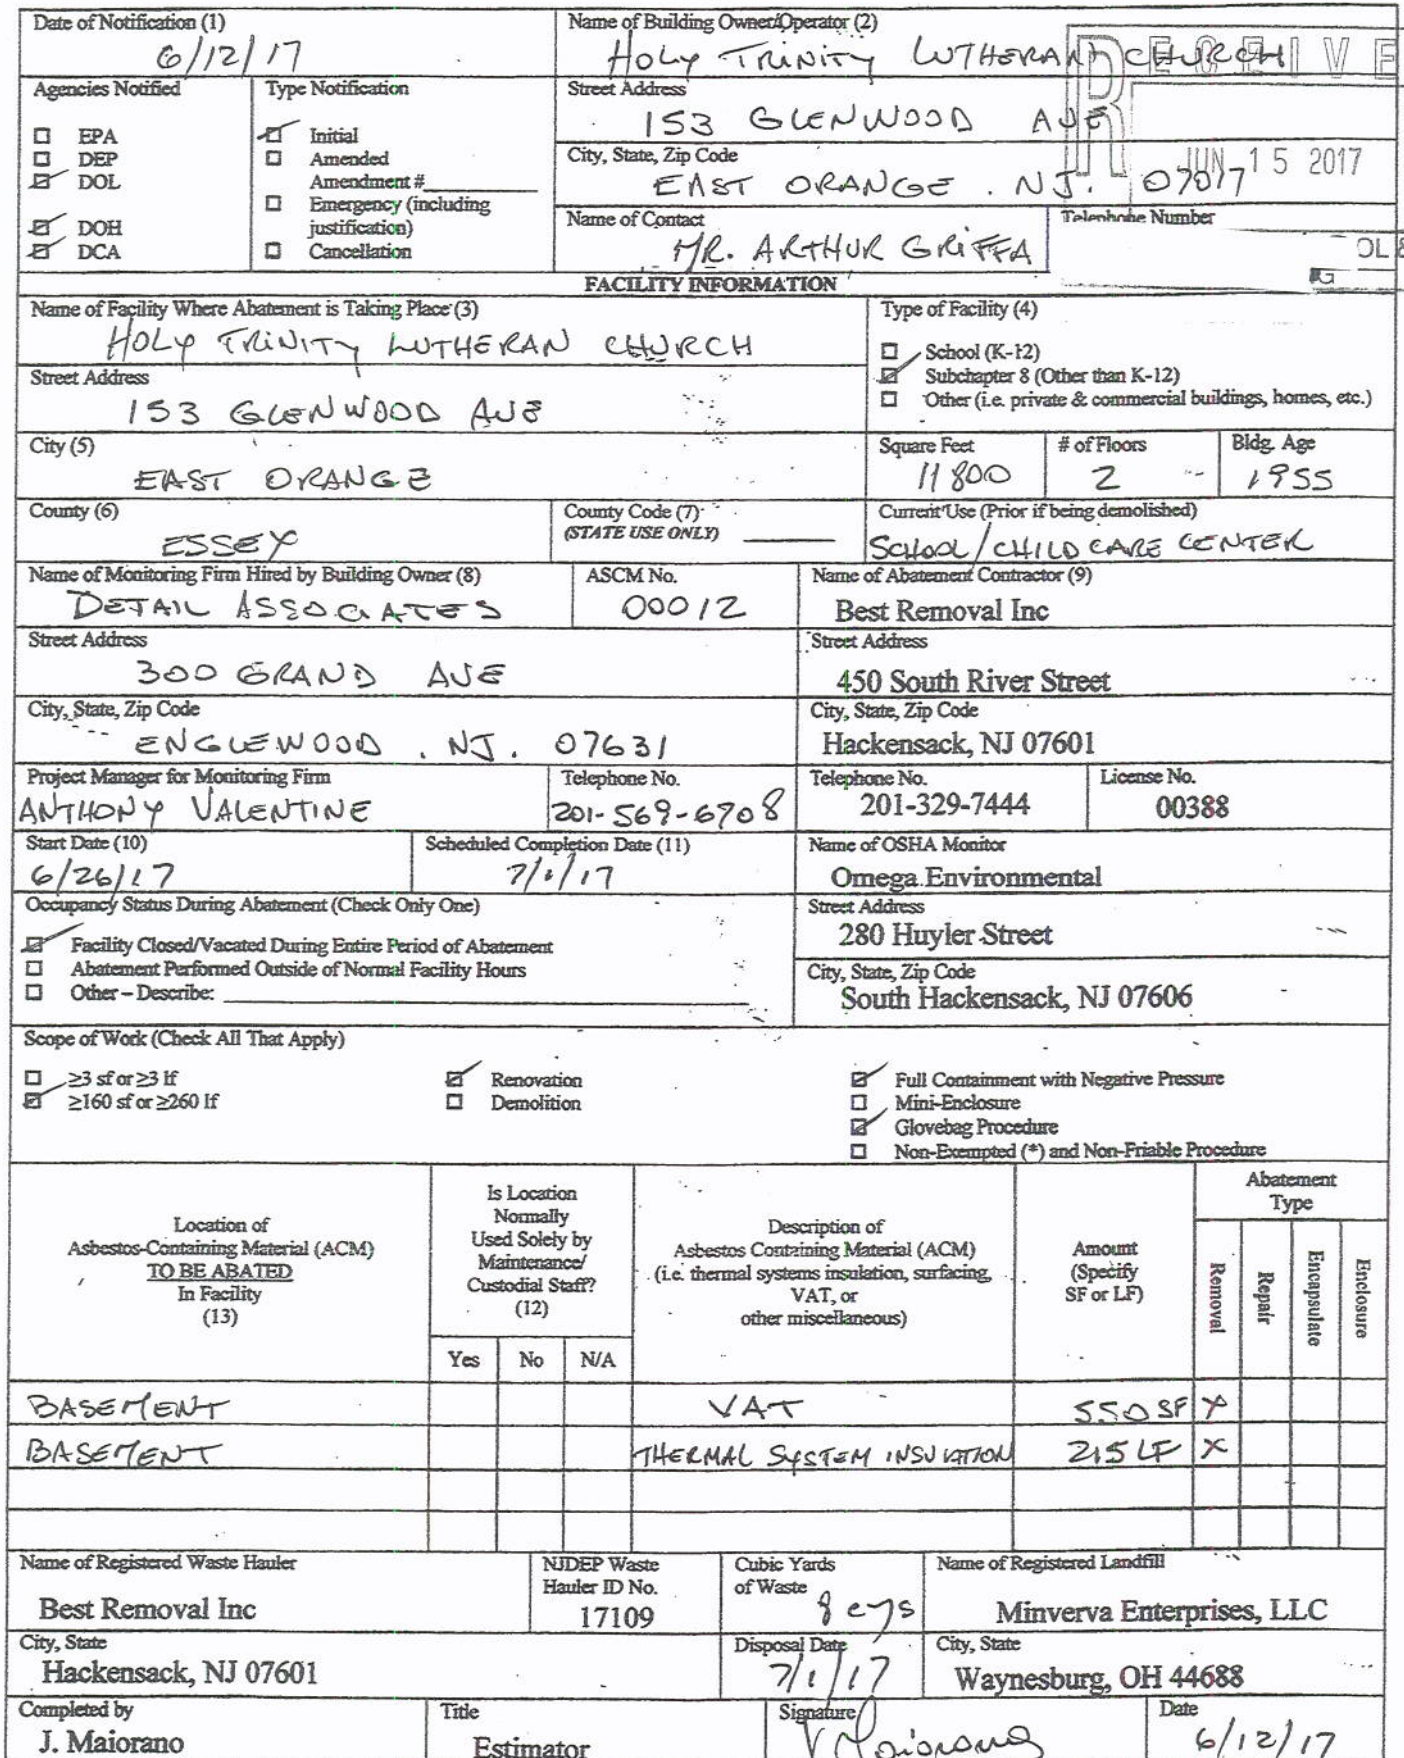 Date of Notification (1)
6/12/17
Name of Building Owner/Operator (2)
HOLY TRINITY LUTHERAN CHURCH
RECEIVE
Agencies Notified
EPA
DEP
DOL
DOH
DCA
Type Notification
Initial
Amended
Amendment #
Emergency (including
justification)
Cancellation
Street Address
153 GLENWOOD AVE
City, State, Zip Code
EAST ORANGE . NJ. 07017
JUN 15 2017
Name of Contact
MR. ARTHUR GRIFFA
Telephone Number
OL &
FACILITY INFORMATION
Name of Facility Where Abatement is Taking Place (3)
HOLY TRINITY LUTHERAN CHURCH
Type of Facility (4)
School (K-12)
Subchapter 8 (Other than K-12)
Other (i.e. private & commercial buildings, homes, etc.)
Street Address
153 GLENWOOD AVE
City (5)
EAST ORANGE
Square Feet
11800
# of Floors
2
Bldg. Age
1955
County (6)
ESSEX
County Code (7)
(STATE USE ONLY)
Current Use (Prior if being demolished)
SCHOOL/CHILD CARE CENTER
Name of Monitoring Firm Hired by Building Owner (8)
DETAIL ASSOCIATES
ASCM No.
00012
Name of Abatement Contractor (9)
Best Removal Inc
Street Address
300 GRAND AVE
Street Address
450 South River Street
City, State, Zip Code
ENGLEWOOD . NJ. 07631
City, State, Zip Code
Hackensack, NJ 07601
Project Manager for Monitoring Firm
ANTHONY VALENTINE
Telephone No.
201-569-6708
Telephone No.
201-329-7444
License No.
00388
Start Date (10)
6/26/17
Scheduled Completion Date (11)
7/1/17
Name of OSHA Monitor
Omega Environmental
Occupancy Status During Abatement (Check Only One)
Facility Closed/Vacated During Entire Period of Abatement
Abatement Performed Outside of Normal Facility Hours
Other – Describe:
Street Address
280 Huyler Street
City, State, Zip Code
South Hackensack, NJ 07606
Scope of Work (Check All That Apply)
≥3 sf or ≥3 lf
≥160 sf or ≥260 lf
Renovation
Demolition
Full Containment with Negative Pressure
Mini-Enclosure
Glovebag Procedure
Non-Exempted (*) and Non-Friable Procedure
Location of
Asbestos-Containing Material (ACM)
TO BE ABATED
In Facility
(13)
Is Location
Normally
Used Solely by
Maintenance/
Custodial Staff?
(12)
Yes No N/A
Description of
Asbestos Containing Material (ACM)
(i.e. thermal systems insulation, surfacing,
VAT, or
other miscellaneous)
Amount
(Specify
SF or LF)
Abatement
Type
Removal
Repair
Encapsulate
Enclosure
BASEMENT VAT 550 SF X
BASEMENT THERMAL SYSTEM INSULATION 215 LF X
Name of Registered Waste Hauler
Best Removal Inc
NJDEP Waste
Hauler ID No.
17109
Cubic Yards
of Waste
8 cys
Name of Registered Landfill
Minverva Enterprises, LLC
City, State
Hackensack, NJ 07601
Disposal Date
7/1/17
City, State
Waynesburg, OH 44688
Completed by
J. Maiorano
Title
Estimator
Signature
J Maiorano
Date
6/12/17